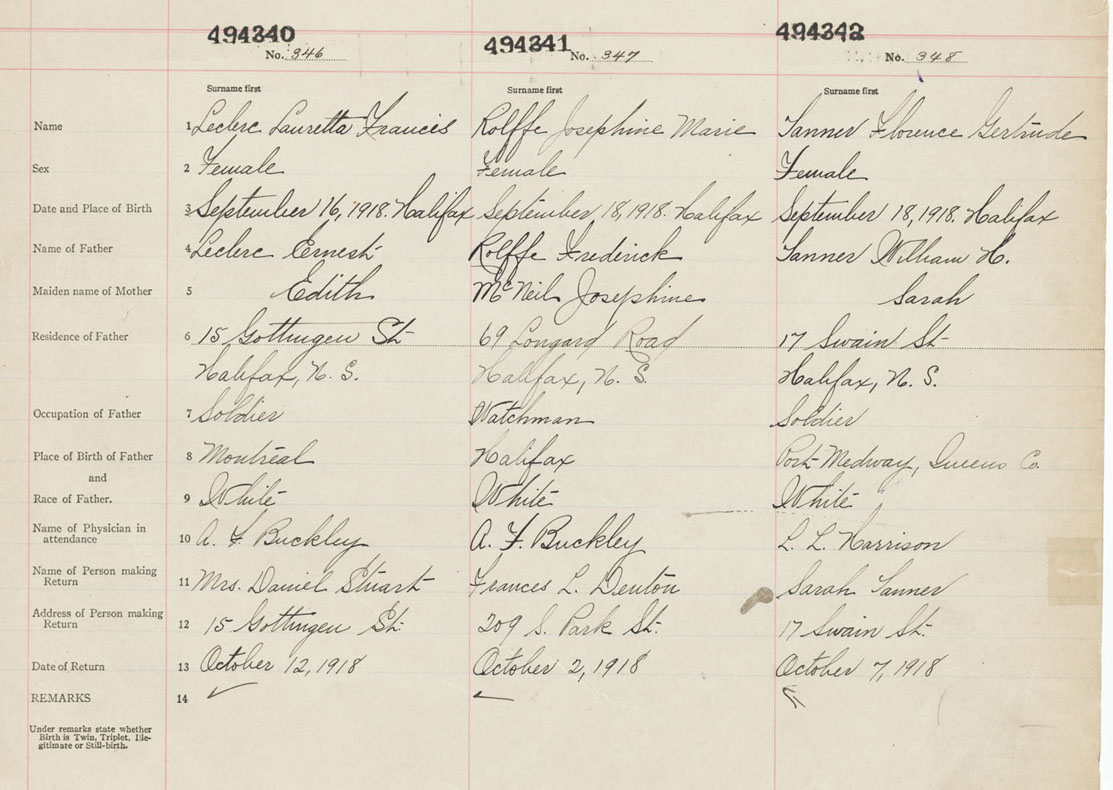 494340 494341 494342
No. 346 No. 347 No. 348
Surname first Surname first Surname first
Name 1 Leclerc Lauretta Francis Rolffe Josephine Marie Tanner Florence Gertrude
Sex 2 Female Female Female
Date and Place of Birth 3 September 16, 1918. Halifax September, 18, 1918. Halifax September 18, 1918. Halifax
Name of Father 4 Leclerc Ernest Rolffe Frederick Tanner William H.
Maiden name of Mother 5 Edith McNeil Josephine Sarah
Residence of Father 6 15 Gottingen St 69 Longard Road 17 Swain St
Halifax, N. S. Halifax, N. S. Halifax, N. S.
Occupation of Father 7 Soldier Watchman Soldier
Place of Birth of Father 8 Montreal Halifax Port Medway, Queens Co.
and
Race of Father. 9 White White White
Name of Physician in
attendance 10 A. F. Buckley A. F. Buckley L. L. Harrison
Name of Person making
Return 11 Mrs. Daniel Stuart Frances L. Denton Sarah Tanner
Address of Person making
Return 12 15 Gottingen St. 209 S. Park St. 17 Swain St.
Date of Return 13 October 12, 1918 October 2, 1918 October 7, 1918
REMARKS 14
Under remarks state whether
Birth is Twin, Triplet, Ille-
gitimate or Still-birth.